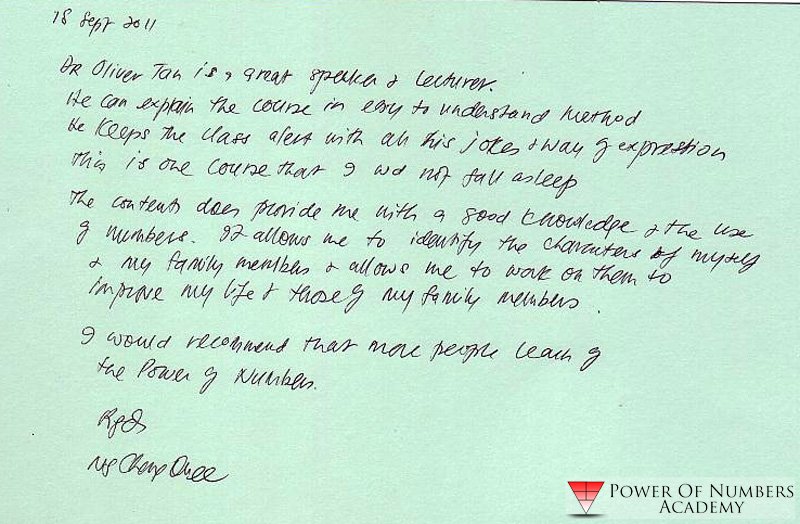 18 Sept 2011
DR Oliver Tan is a great speaker & lecturer.
He can explain the course in easy to understand method
He keeps the class alert with all his jokes & way of expression
This is one course that I wd not fall asleep
The contents does provide me with a good knowledge & the use
of numbers. It allows me to identify the characters of myself
& my family members & allows me to work on them to
improve my life & those of my family members.
I would recommend that more people learn of
the Power of Numbers.
Rgds
Ng
POWER OF NUMBERS
ACADEMY